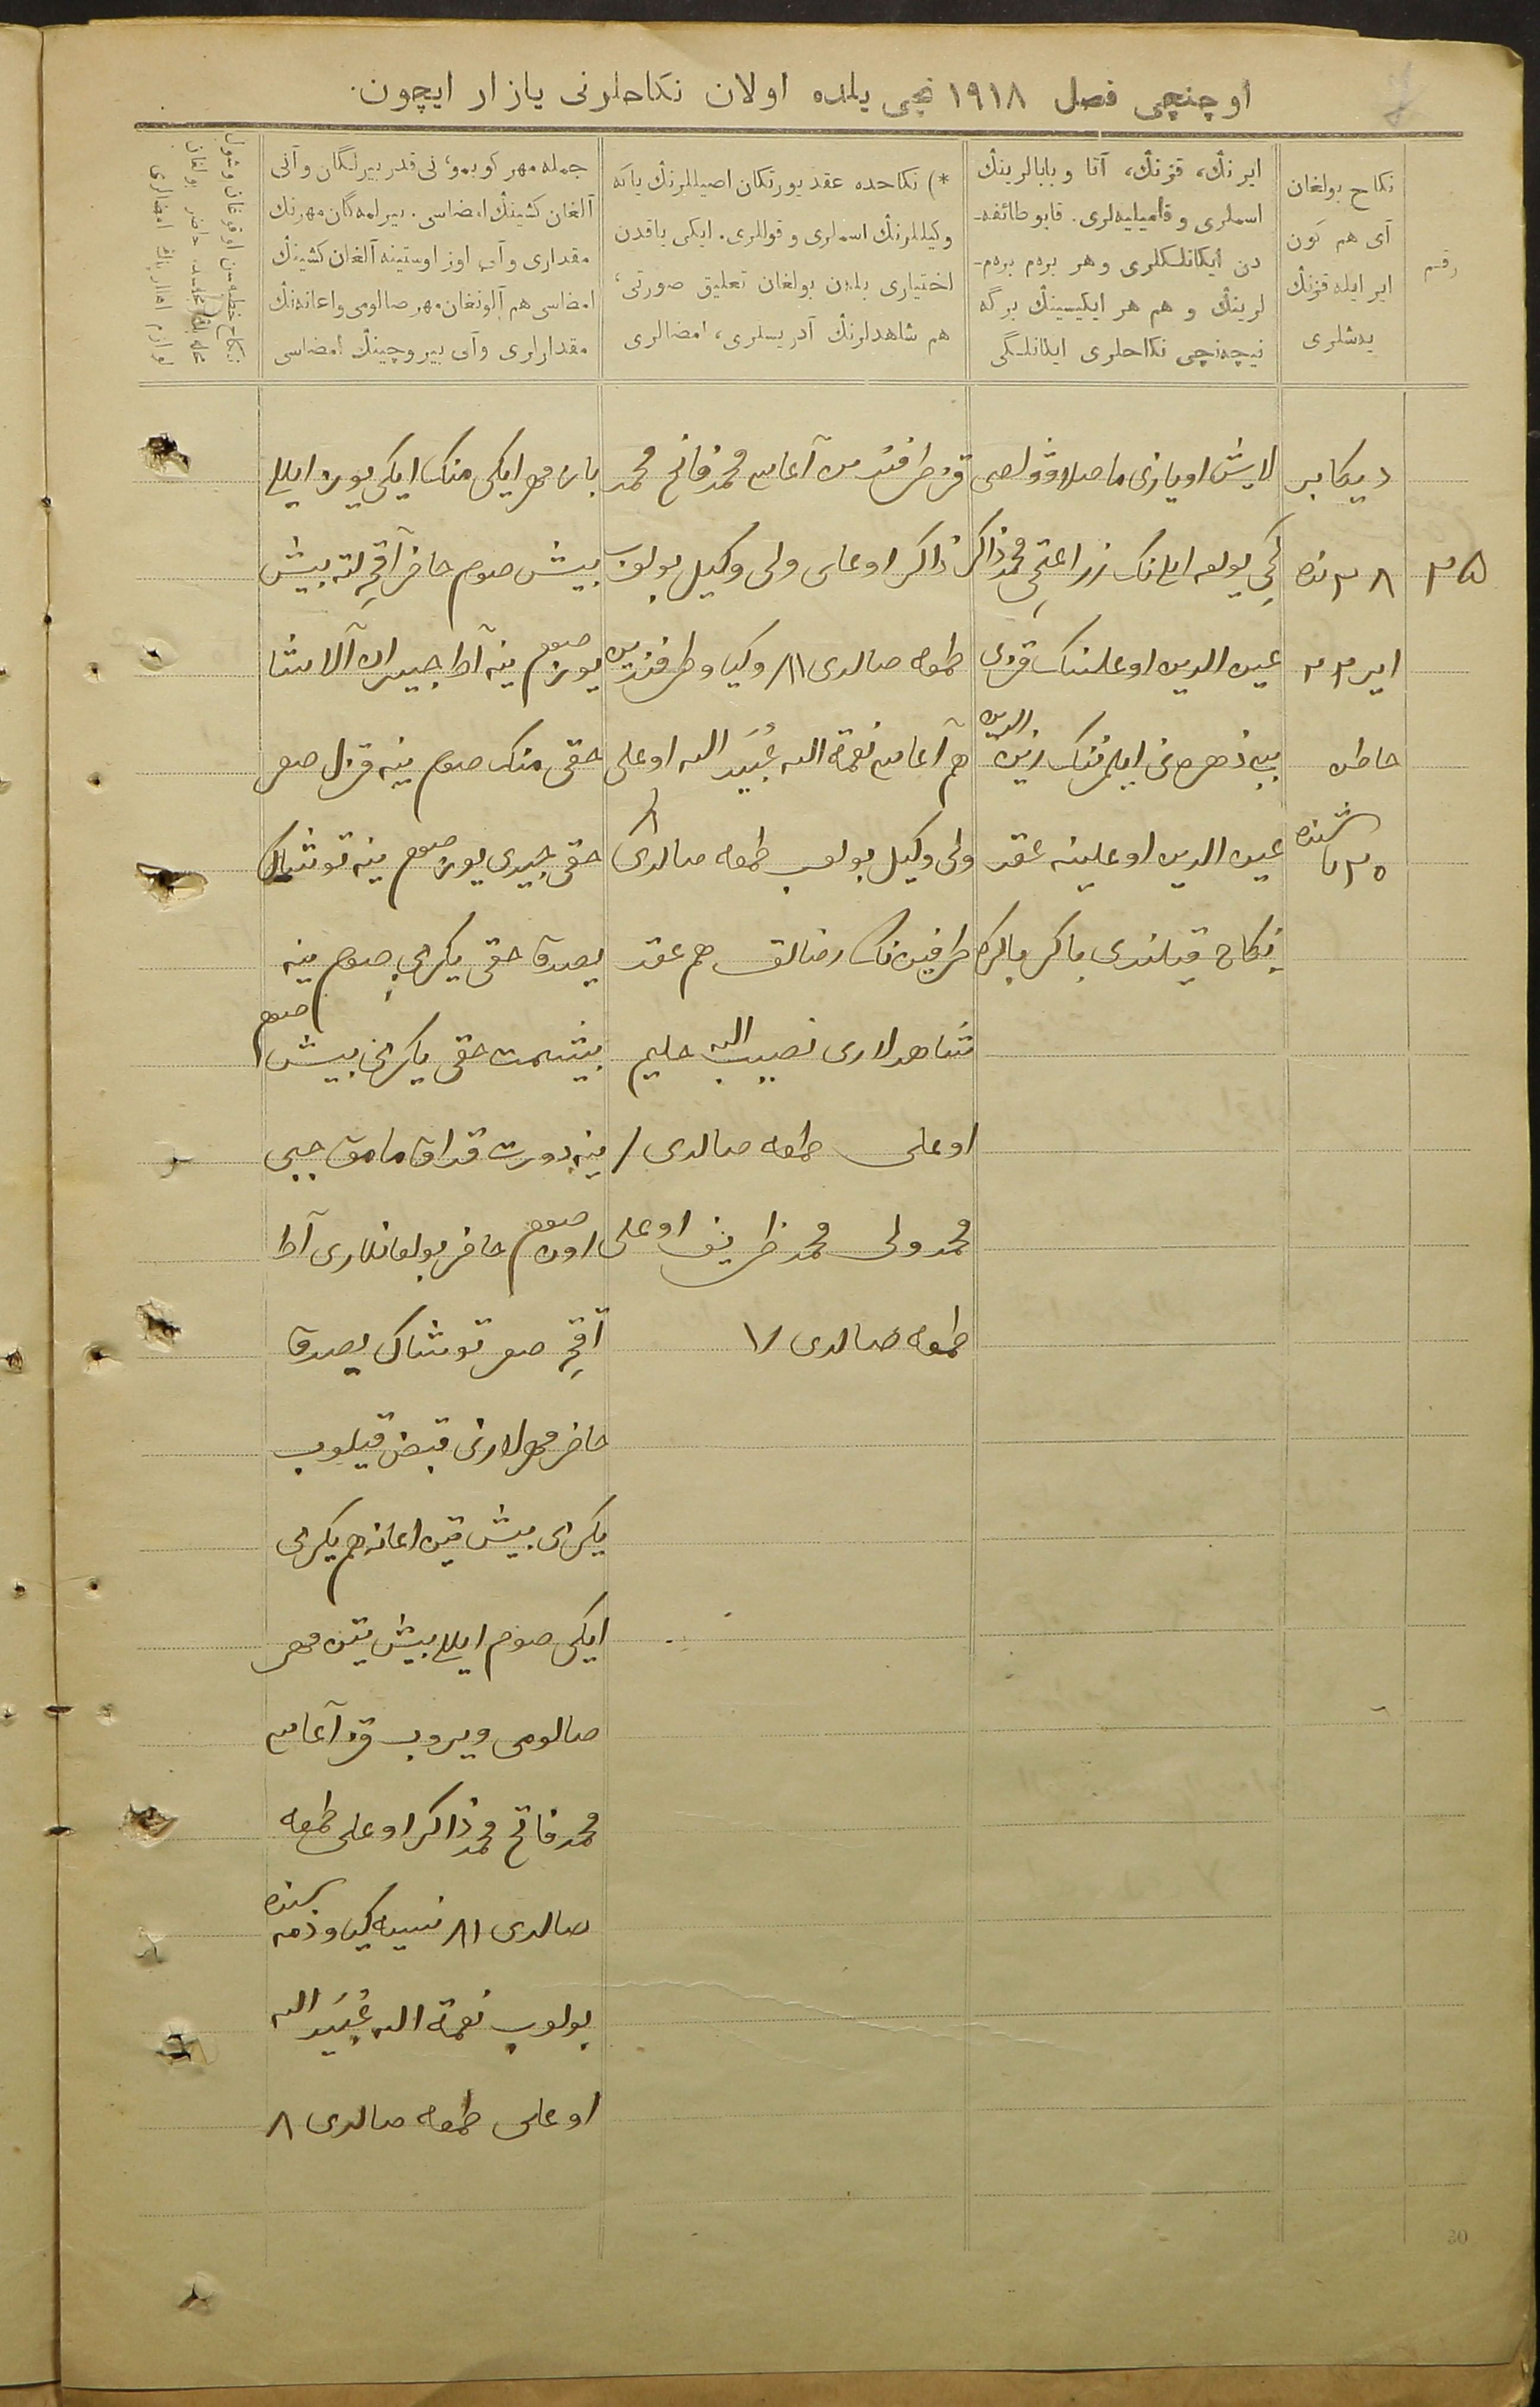 اوچنچی فصل ١٩١٨ نچی یلده اولان نکاحلرنی یازار ایچون.
رقم
نکاح بولغان
آی هم کون
ایر ایله قزنڭ
یەشلری
ایرنڭ، قزنڭ، آتا و بابالرینڭ
اسملری و فامیلیەلری. قایو طائفە-
دن ایکانلکلری و هر بردم بردم-
لرینڭ و هم هر ایکیسینڭ برگە
نیچەنچی نکاحلری ایکانلگی
*) نکاحده عقد یورتکان اصیللرنڭ یاکە
وکیللرنڭ اسملری و قوللری. ایکی یاقدن
اختیاری بلەن بولغان تعلیق صورتی،
هم شاهدلرنڭ آدریسلری، امضالری
جمله مهر کوبمو، نی قدر بیرلگان و آنی
آلغان کشینڭ امضاسی. بیرلمەگان مهرنڭ
مقداری و آنی اوز اوستینه آلغان کشینڭ
امضاسی هم آلونغان مهر صالومی و اعانەنڭ
مقدارلری و آنی بیروچینڭ امضاسی
دیکابر
٢٨ نده
ایر ٢٢
خاطن
٢٠ یاشنده
لایش اویازی ماصلاوقولصی
کچی یولغه ایلی نک زراعتچی محمد ذاکر
عین الدین اوغلینک قزی
بی بی زهره نی ایلمزنک زین الدین
عین الدین اوغلینه عقد
نکاح قیلندی باکر باکره
قز طرفندن آغاسی محمد فاتح محمد
ذاکر اوغلی ولی وکیل بولوب
طمغه صالدی ٨١ وکیاو طرفندن
هم آغاسی نعمة الله عُبَید الله اوغلی
ولی وکیل بولوب طمغه صالدی
طرفین نک رضالق هم عقد
شاهدلاری نصیب الله حلیم
اوغلی طمغه صالدی /
محمد ولی محمد ظریف اوغلی
طمغه صالدی ٧١
بارى مهر ایکی منک ایکی یوز ایللی
بیش صوم حاضر آقچه لته بیش
یوز صوم ینه آط جیران آلاشا
حقی منک صوم ینه قزل صعر
حقی جیدی یوز صوم ینه توشاک
یصدق حقی یکرمی صوم ینه
بیشمت حقی یکرمی بیش صوم
ینه دورت قداق مامق جبی
اون صوم حاضر بولغانلاری آط
آقچه صعر توشاک یصدق
حاضر مهرلارنی قبض قیلوب
یکرمی بیش تین اعانه هم یکرمی
ایکی صوم ایللی بیش تین مهر
صالومی ویروب قز آغاسی
محمد فاتح محمد ذاکر اوغلی طمغه
صالدی ٨١ نسیه کیاو ذمه سنده
بولوب نعمة الله عُبَید الله
اوغلی طمغه صالدی ٨